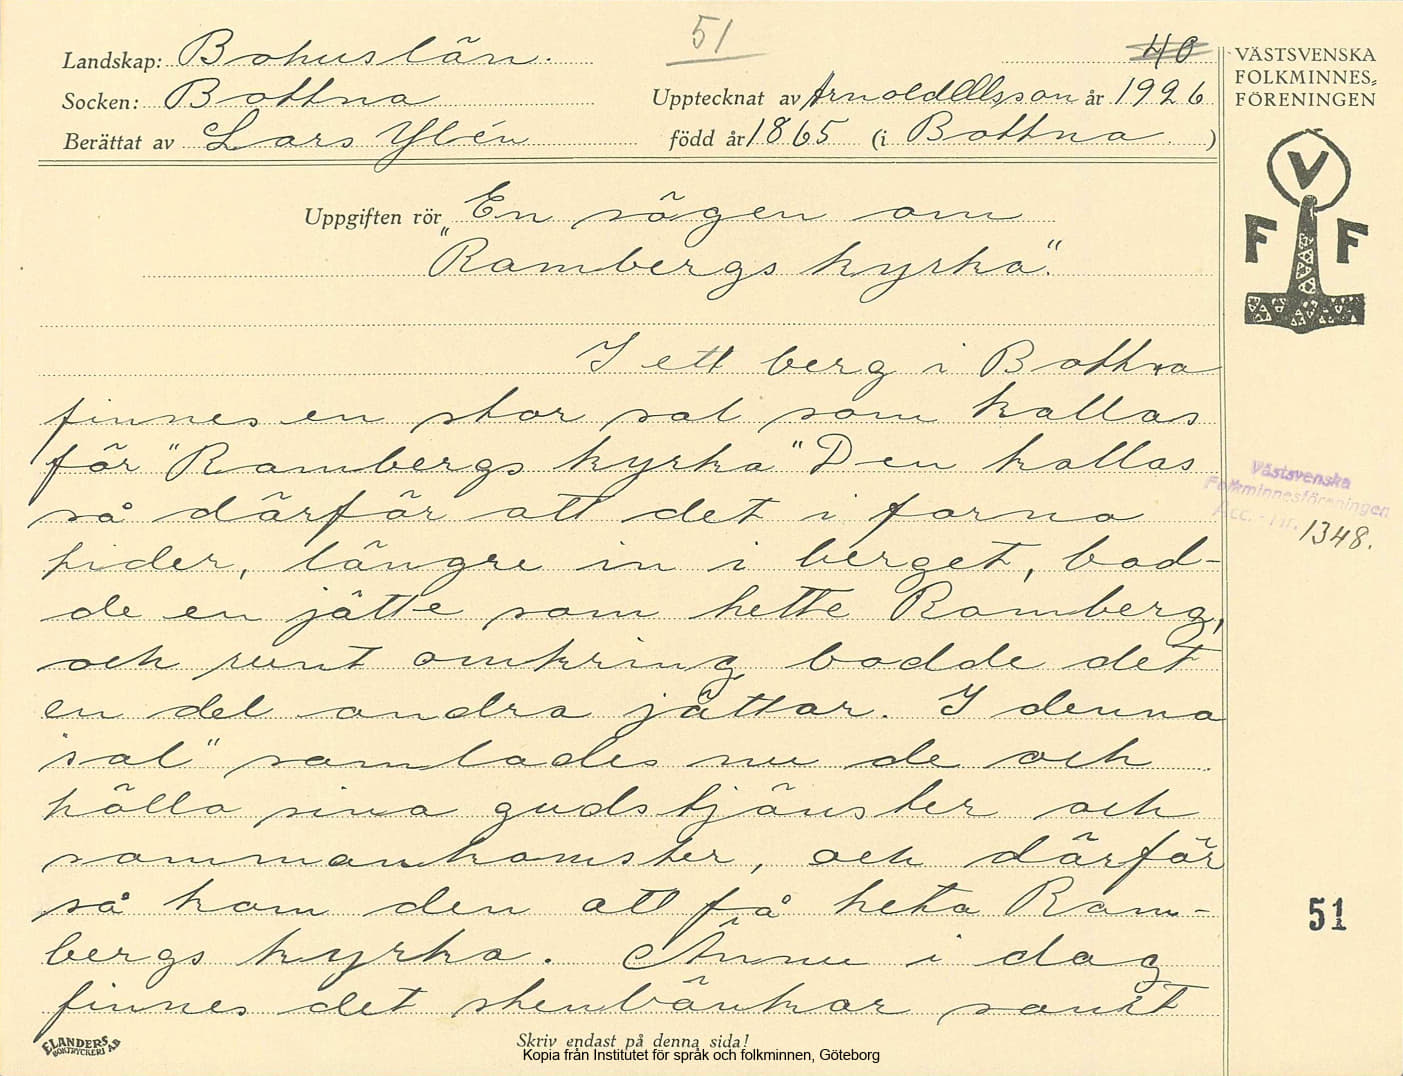 51
Landskap: Bohuslän.
40
Socken: Bottna
Upptecknat av Arnold Olsson år 1926
Berättat av Lars Ylén
född år 1865 (i Bottna )
VÄSTSVENSKA
FOLKMINNES=
FÖRENINGEN
V
F F
Uppgiften rör En sägen om
"Rambergs kyrka".
I ett berg i Bottna
finnes en stor sal som kallas
för "Rambergs kyrka" Den kallas
så därför att det i forna
tider, längre in i berget, bod-
de en jätte som hette Ramberg,
och runt omkring bodde det
en del andra jättar. I denna
"sal" samlades nu de och
hölla sina gudstjänster och
sammankomster, och därför
så kom den att få heta Ram-
bergs kyrka. Ännu i dag
finnes det stenbänkar samt
Västsvenska
Folkminnesföreningen
Acc. - nr. 1348.
51
ELANDERS
BOKTRYCKERI AB
Skriv endast på denna sida!
Kopia från Institutet för språk och folkminnen, Göteborg